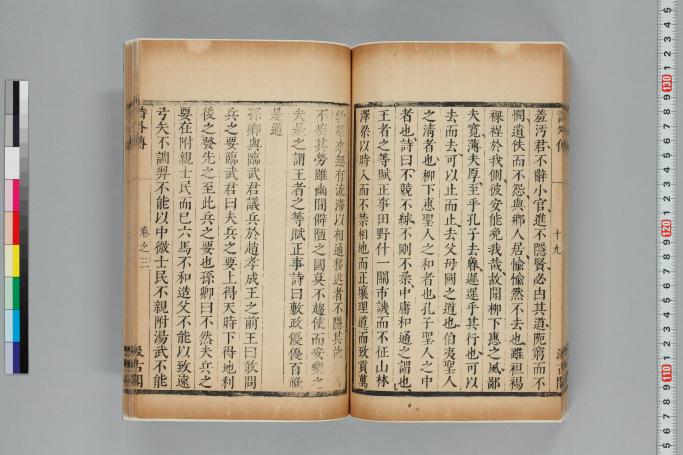 詩外傳 十九 汲古閣
羞汚君不辭小官進不隱賢必由其道阨窮而不
憫遺佚而不怨與鄉人居愉愉然不去也雖袒裼
裸裎於我側彼安能浼我哉故聞柳下惠之風鄙
夫寬薄夫厚至乎孔子去魯遲遲乎其行也可以
去而去可以止而止去父母國之道也伯夷聖人
之清者也柳下惠聖人之和者也孔子聖人之中
者也詩曰不競不絿不剛不柔中庸和通之謂也
王者之等賦正事田野什一關市譏而不征山林
澤梁以時入而不禁相地而正壤理道而致貢萬
物羣來無有流滯以相通移近者不隱其能
不疾其勞雖幽間僻陋之國莫不趨使而安樂之
夫是之謂王者之等賦正事詩曰敷政優優百祿
是遒
孫卿與臨武君議兵於趙孝成王之前王曰敢問
兵之要臨武君曰夫兵之要上得天時下得地利
後之發先之至此兵之要也孫卿曰不然夫兵之
要在附親士民而已六馬不和造父不能以致遠
弓矢不調羿不能以中微士民不親附湯武不能
詩外傳 卷之三 汲古閣